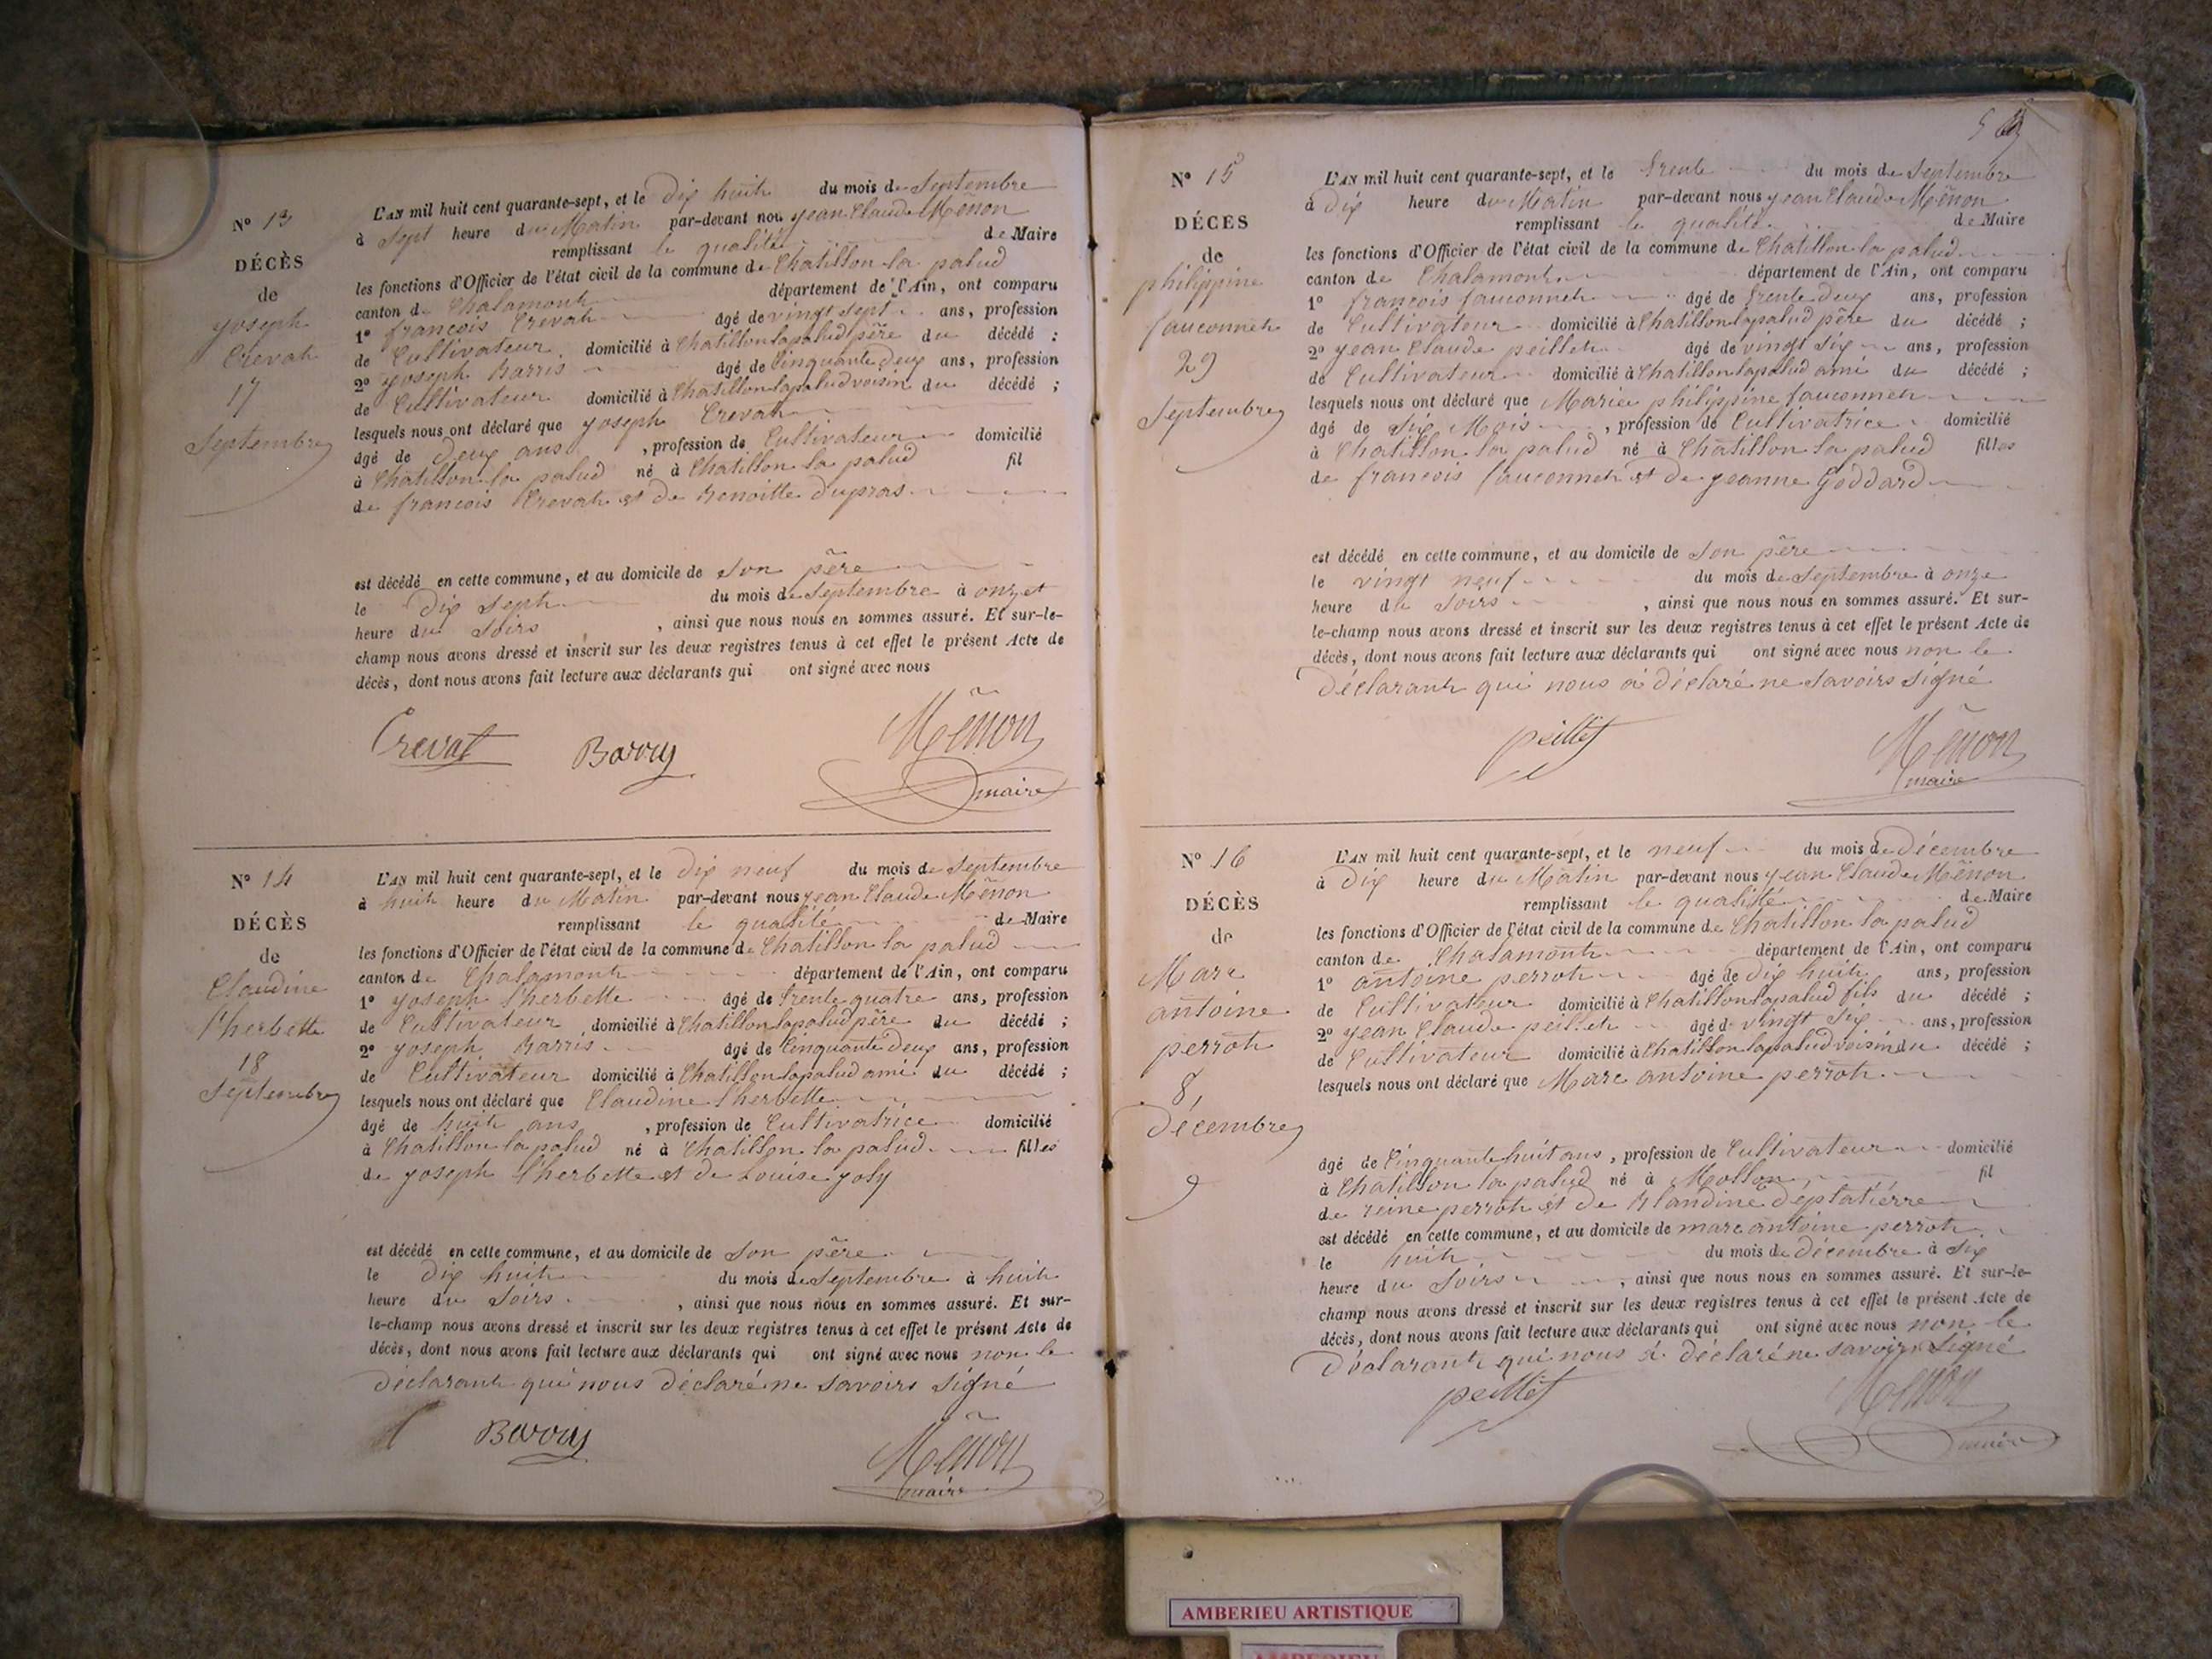 N° 13
DÉCÈS
de
joseph
Crevat
17
Septembre
L'AN mil huit cent quarante-sept, et le dix huit du mois de Septembre
à Sept heure du Matin par-devant nou jean Claude Mênon
remplissant le qualité de Maire
les fonctions d'Officier de l'état civil de la commune de Chatillon la palud
canton de Chalamont département de l'Ain, ont comparu
1° françois Crevat âgé de vingt Sept ans, profession
de Cultivateur domicilié à Chatillon lapalud père du décédé ;
2° joseph Barris âgé de Cinquante deux ans, profession
de Cultivateur domicilié à Chatillon lapalud voisin du décédé ;
lesquels nous ont déclaré que joseph Crevat
âgé de deux ans , profession de Cultivateur domicilié
à Chatillon la palud né à Chatillon la palud fil
de françois Crevat et de Benoitte dupras
est décédé en cette commune, et au domicile de Son père
le dix Sept du mois de Septembre à onzet
heure du Soirs , ainsi que nous nous en sommes assuré. Et sur-le-
champ nous avons dressé et inscrit sur les deux registres tenus à cet effet le présent Acte de
décès, dont nous avons fait lecture aux déclarants qui ont signé avec nous
Crevat Barry Mênon
maire
N° 14
DÉCÈS
de
Claudine
l'herbette
18
Septembre
L'AN mil huit cent quarante-sept, et le dix neuf du mois de Septembre
à huit heure du Matin par-devant nous jean Claude Mênon
remplissant le qualité de Maire
les fonctions d'Officier de l'état civil de la commune de Chatillon la palud
canton de Chalamont département de l'Ain, ont comparu
1° joseph l'herbette âgé de trente quatre ans, profession
de Cultivateur domicilié à Chatillon lapalud père du décédé ;
2° joseph Barris âgé de Cinquante deux ans, profession
de Cultivateur domicilié à Chatillon lapalud ami du décédé ;
lesquels nous ont déclaré que Claudine l'herbette
âgé de huit ans , profession de Cultivatrice domicilié
à Chatillon la palud né à Chatillon la palud filles
de joseph l'herbette et de Louise joly
est décédé en cette commune, et au domicile de Son père
le dix huit du mois de Septembre à huit
heure du Soirs , ainsi que nous nous en sommes assuré. Et sur-
le-champ nous avons dressé et inscrit sur les deux registres tenus à cet effet le présent Acte de
décès, dont nous avons fait lecture aux déclarants qui ont signé avec nous non le
déclarant qui nous déclaré ne savoirs signé
Barry Mênon
maire
N° 15
DÉCES
de
philippine
fauconnet
29
Septembre
L'AN mil huit cent quarante-sept, et le trente du mois de Septembre
à dix heure du Matin par-devant nous jean Claude Mênon
remplissant le qualité de Maire
les fonctions d'Officier de l'état civil de la commune de Chatillon la palud
canton de Chalamont département de l'Ain, ont comparu
1° francois fauconnet âgé de trente deux ans, profession
de Cultivateur domicilié à Chatillon lapalud père du décédé ;
2° jean Claude peillet âgé de vingt Six ans, profession
de Cultivateur domicilié à Chatillon lapalud ami du décédé ;
lesquels nous ont déclaré que Mariee philippine fauconnet
âgé de Six Mois , profession de Cultivatrice domicilié
à Chatillon la palud né à Chatillon la palud filles
de francois fauconnet et de jeanne Goddard
est décédé en cette commune, et au domicile de Son père
le vingt neuf du mois de Septembre à onze
heure du Soirs , ainsi que nous nous en sommes assuré. Et sur-
le-champ nous avons dressé et inscrit sur les deux registres tenus à cet effet le présent Acte de
décès, dont nous avons fait lecture aux déclarants qui ont signé avec nous non le
déclarant qui nous à déclaré ne savoirs signé
peillet Mênon
maire
N° 16
DÉCÈS
de
Marc
antoine
perrot
8
décembre
L'AN mil huit cent quarante-sept, et le neuf du mois de décembre
à dix heure du Matin par-devant nous jean Claude Mênon
remplissant le qualité de Maire
les fonctions d'Officier de l'état civil de la commune de Chatillon la palud
canton de Chalamont département de l'Ain, ont comparu
1° antoine perrot âgé de dix huit ans, profession
de Cultivateur domicilié à Chatillon lapalud fils du décédé ;
2° jean Claude peillet âgé de vingt Six ans, profession
de Cultivateur domicilié à Chatillon lapalud voisin du décédé ;
lesquels nous ont déclaré que Marc antoine perrot
âgé de Cinquante huit ans , profession de Cultivateur domicilié
à Chatillon la palud né à Mollon fil
de reine perrot et de Blandine deplatierre
est décédé en cette commune, et au domicile de marc antoine perrot
le huit du mois de décembre à Six
heure du Soirs , ainsi que nous nous en sommes assuré. Et sur-le-
champ nous avons dressé et inscrit sur les deux registres tenus à cet effet le présent Acte de
décès, dont nous avons fait lecture aux déclarants qui ont signé avec nous non le
déclarant qui nous à déclaré ne savoirs signé
peillet Mênon
maire
AMBERIEU ARTISTIQUE
AMBERIEU